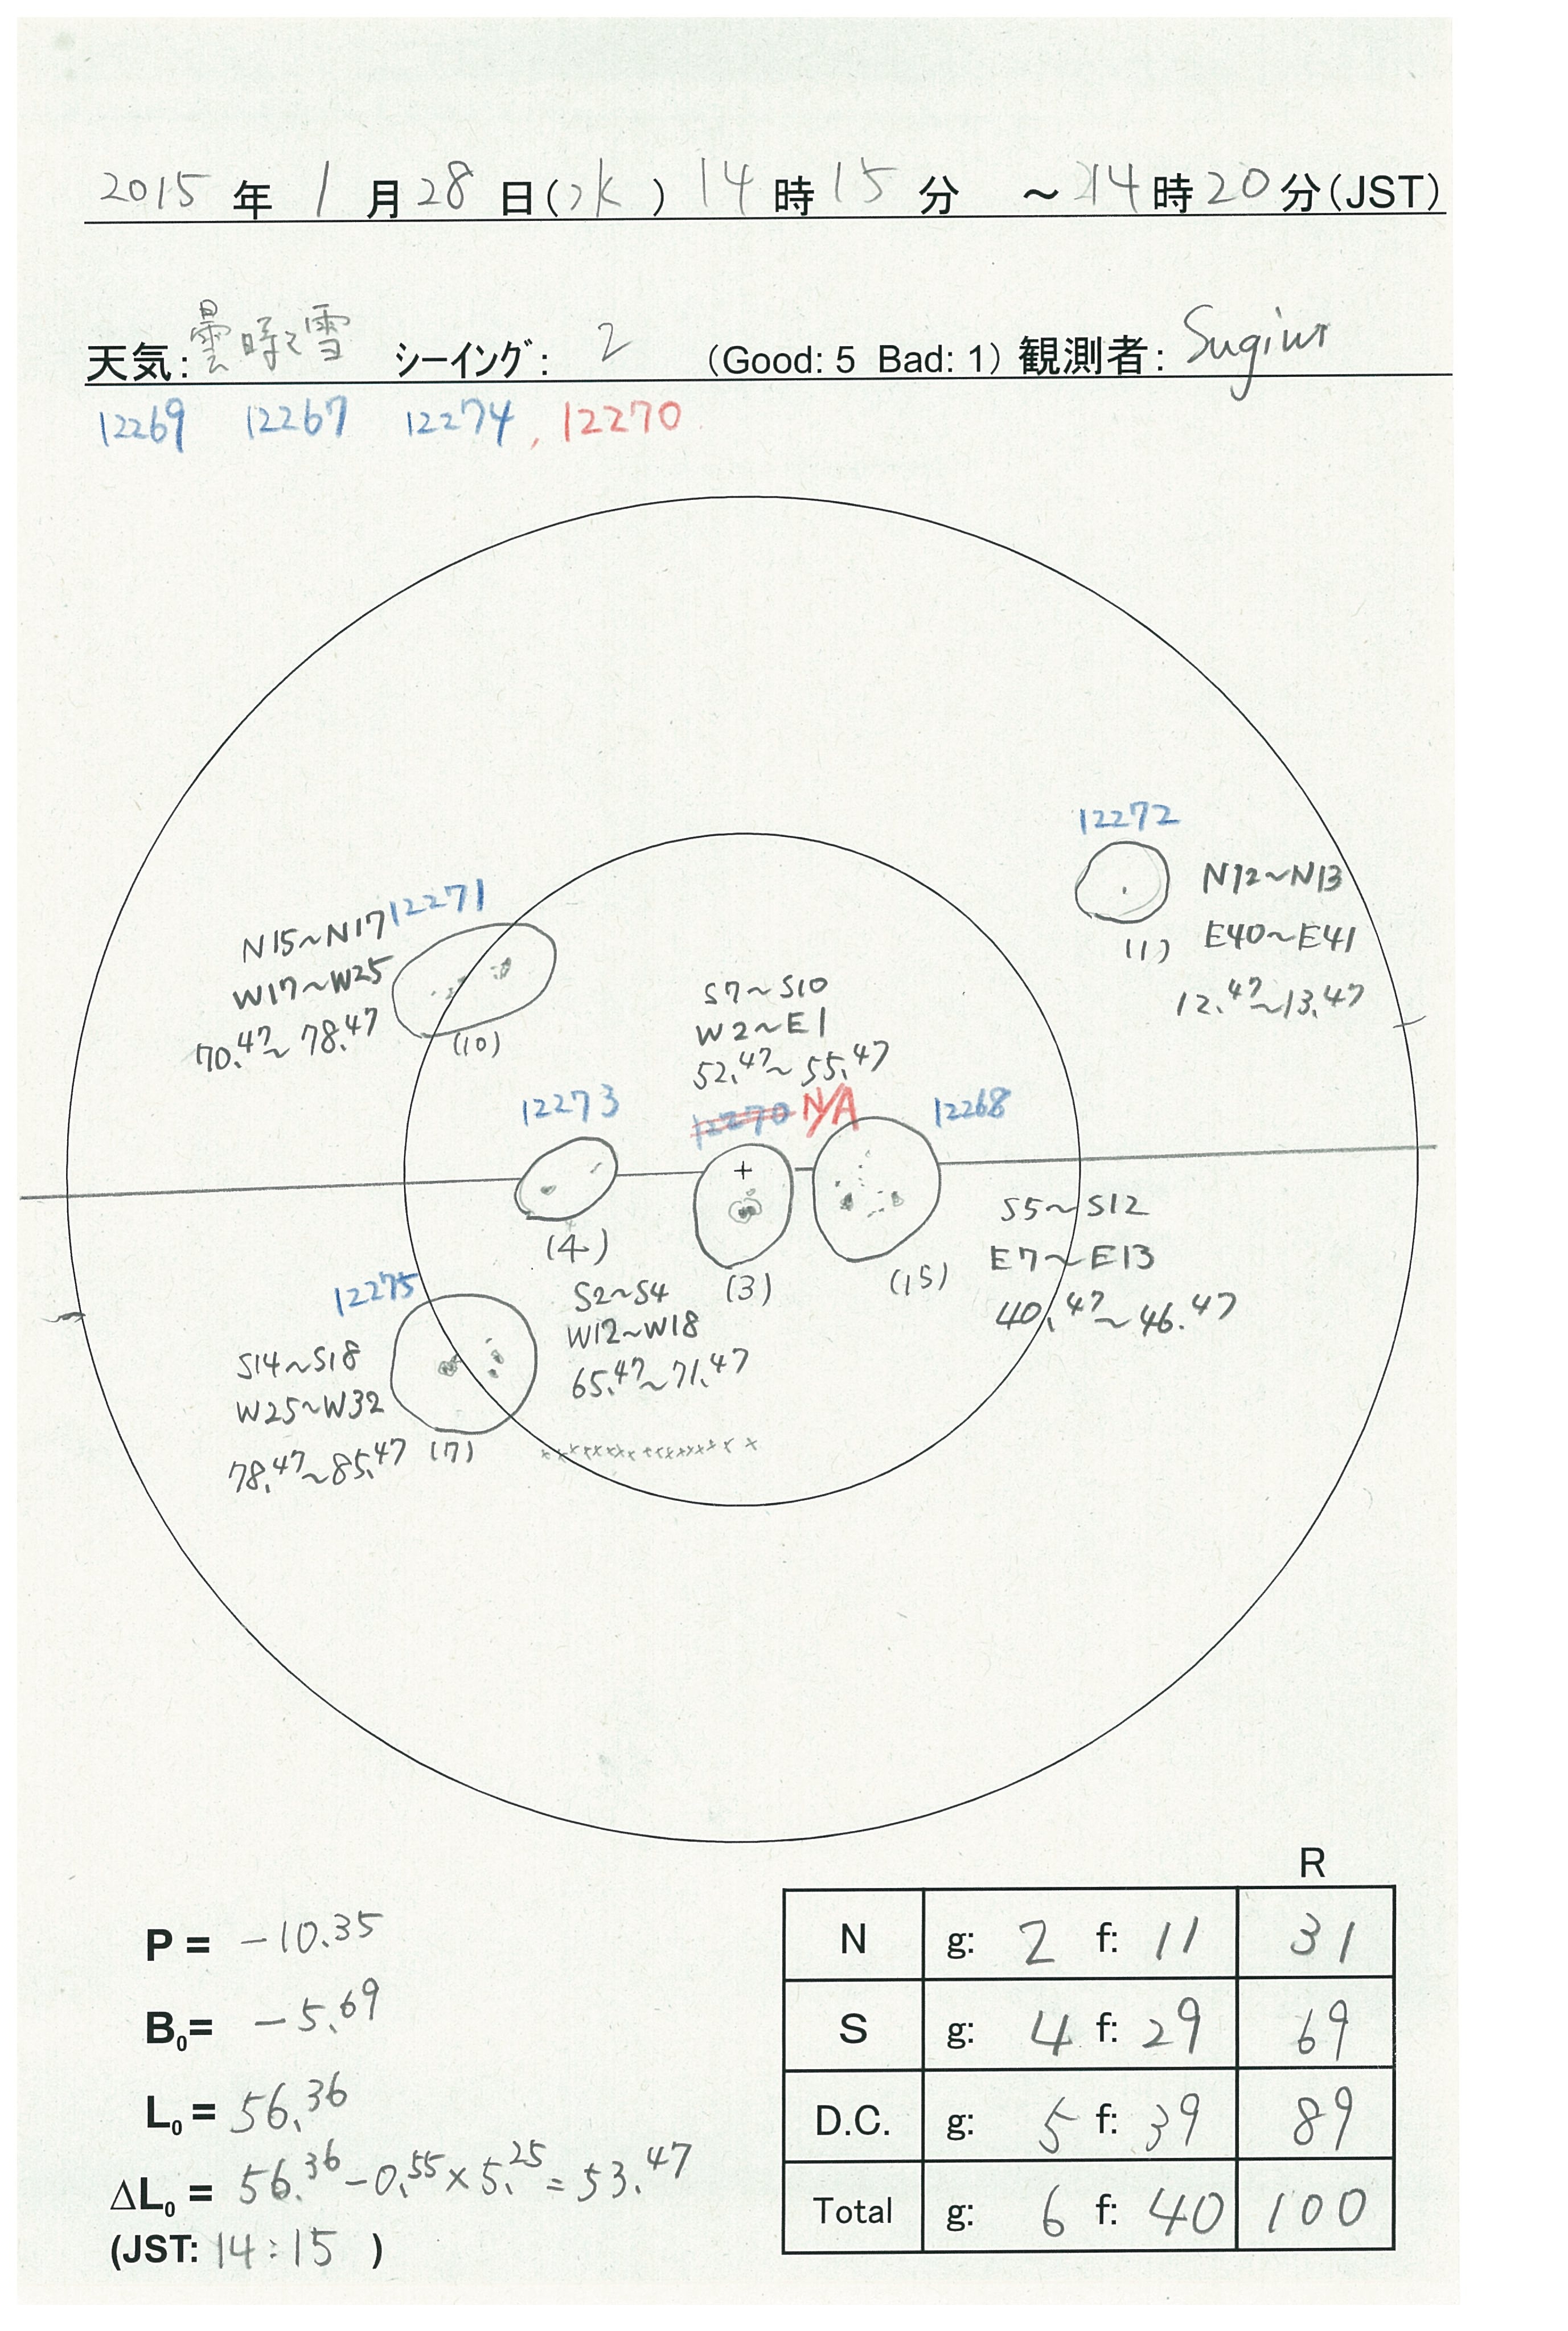 2015 年 1 月 28 日(水) 14 時 15 分 ～ 14 時 20 分(JST)
天気: 曇時々雪 シーイング: 2 (Good: 5 Bad: 1) 観測者:
12269 12267 12274, 12270
12272
N12~N13
E40~E41
12.47~13.47
(1)
12271
N15~N17
W17~W25
70.47~78.47
(10)
S7~S10
W2~E1
52.47~55.47
12270 N/A
(3)
12273
(4)
S2~S4
W12~W18
65.47~71.47
12268
(15)
S5~S12
E7~E13
40.47~46.47
12275
S14~S18
W25~W32
78.47~85.47
(7)
P = -10.35
B0= -5.69
L0 = 56.36
ΔL0 = 56.36-0.55×5.25=53.47
(JST: 14:15 )
R
N g: 2 f: 11 31
S g: 4 f: 29 69
D.C. g: 5 f: 39 89
Total g: 6 f: 40 100